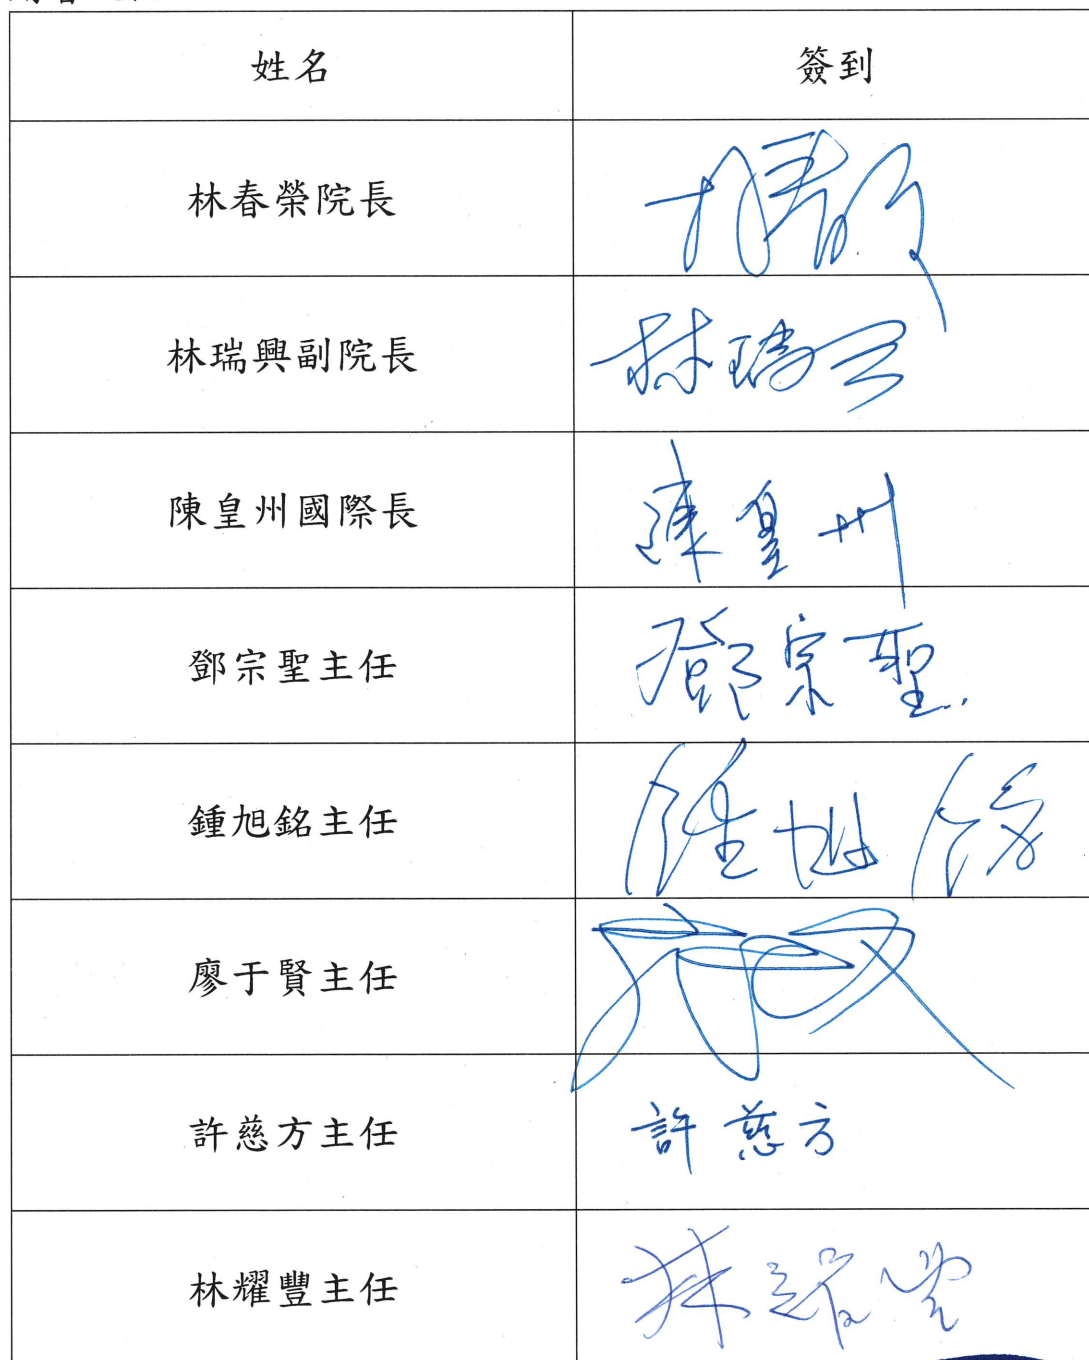 姓名 簽到
林春榮院長
林瑞興副院長 林瑞興
陳皇州國際長 陳皇州
鄧宗聖主任 鄧宗聖
鍾旭銘主任 鍾旭銘
廖于賢主任
許慈方主任 許慈方
林耀豐主任 林耀豐